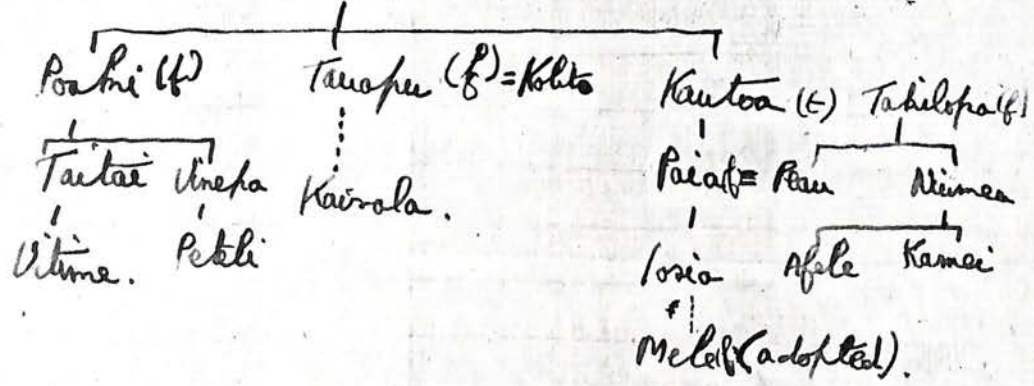 Poahi (f) Tauapu (f) = Kolito Kautoa (t) Tahilopa (f)
Taitai Vinepa Kaivola. Paia f = Peau Niumea
Vitima. Peteli Iosia Afele Kamei
f
Mele f (adopted).